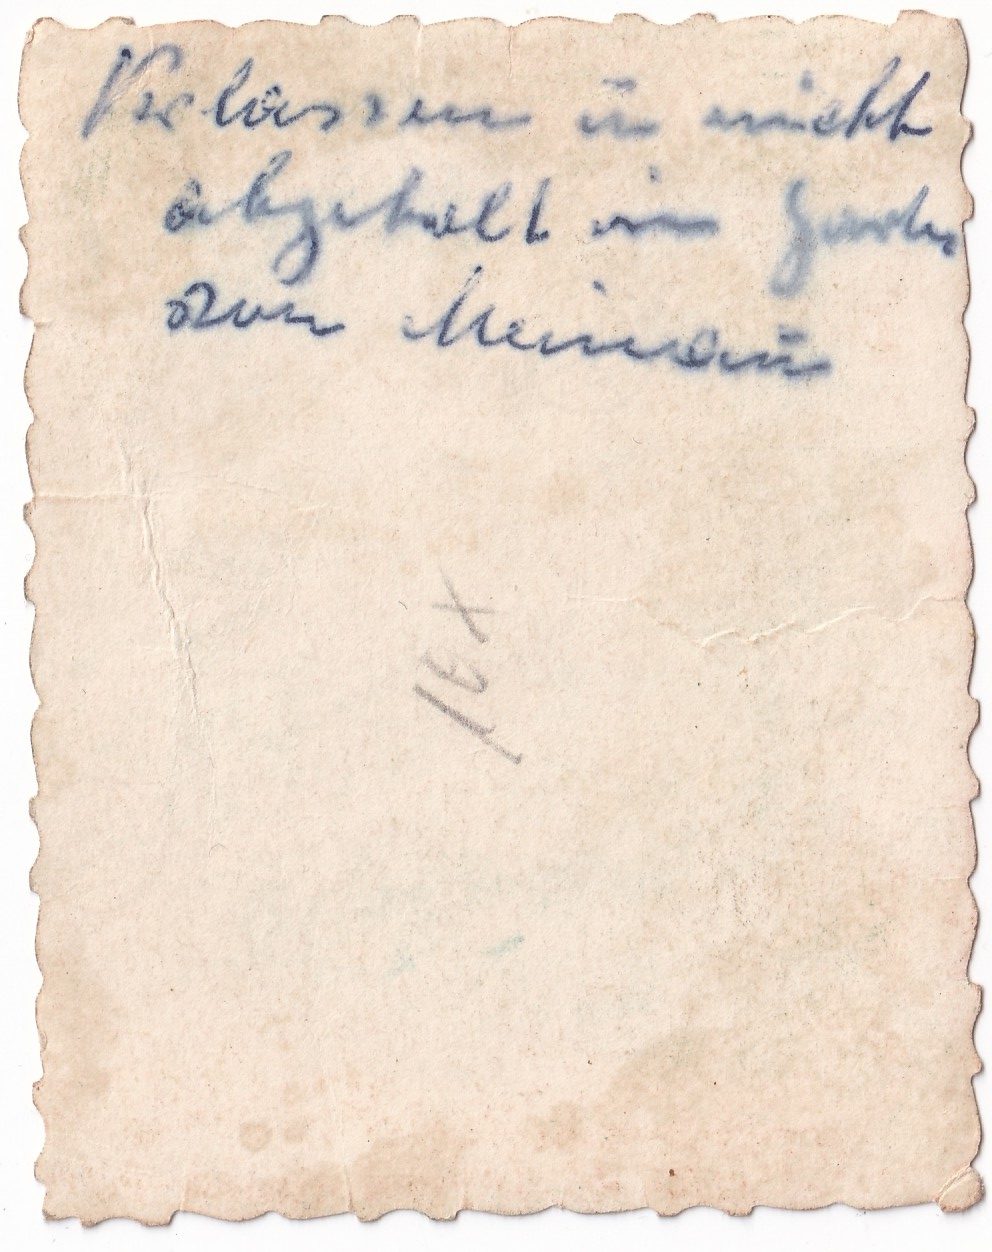 Verlassen ū nicht
abgeholt im Garten
von Meinau